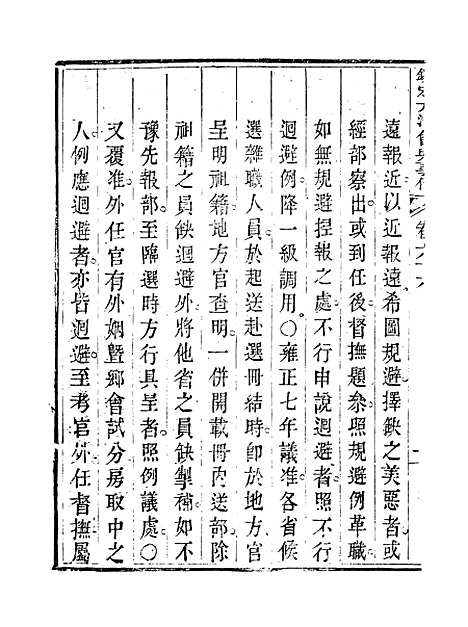 遠報近以近報遠希圖規避擇缺之美惡者或
經部察出或到任後督撫題參照規避例革職
如無規避捏報之處不行申說迴避者照不行
迴避例降一級調用○雍正七年議准各省候
選雜職人員於起送赴選冊結時即於地方官
呈明祖籍地方官查明一併開載冊內送部除
祖籍之員缺迴避外將他省之員缺掣補如不
豫先報部至臨選時方行具呈者照例議處○
又覆准外任官有外姻暨鄉會試分房取中之
人例應迴避者亦皆迴避至考官外任督撫屬